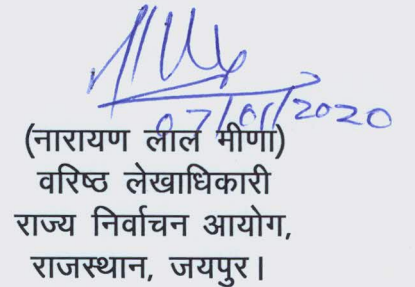 07/01/2020
(नारायण लाल मीणा)
वरिष्ठ लेखाधिकारी
राज्य निर्वाचन आयोग,
राजस्थान, जयपुर।